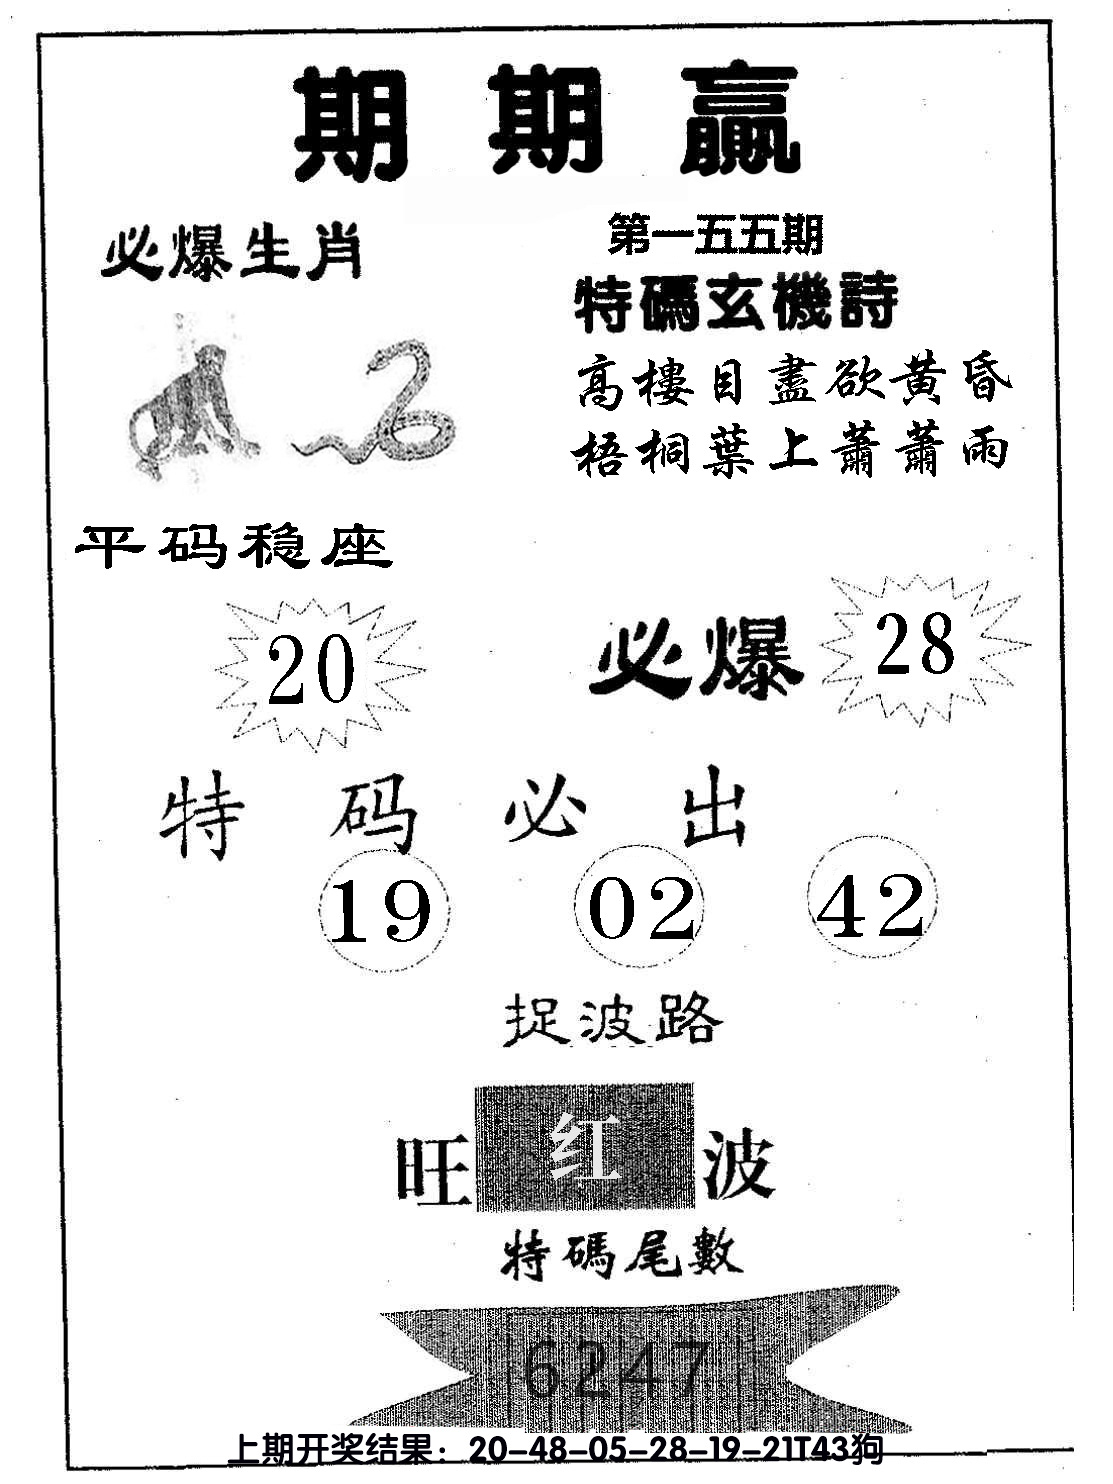 期期贏
必爆生肖
第一五五期
特碼玄機詩
高樓目盡欲黄昏
梧桐葉上蕭蕭雨
平码稳座
20
必爆 28
特码必出
19 02 42
捉波路
旺红波
特碼尾數
6247
上期开奖结果：20-48-05-28-19-21T43狗